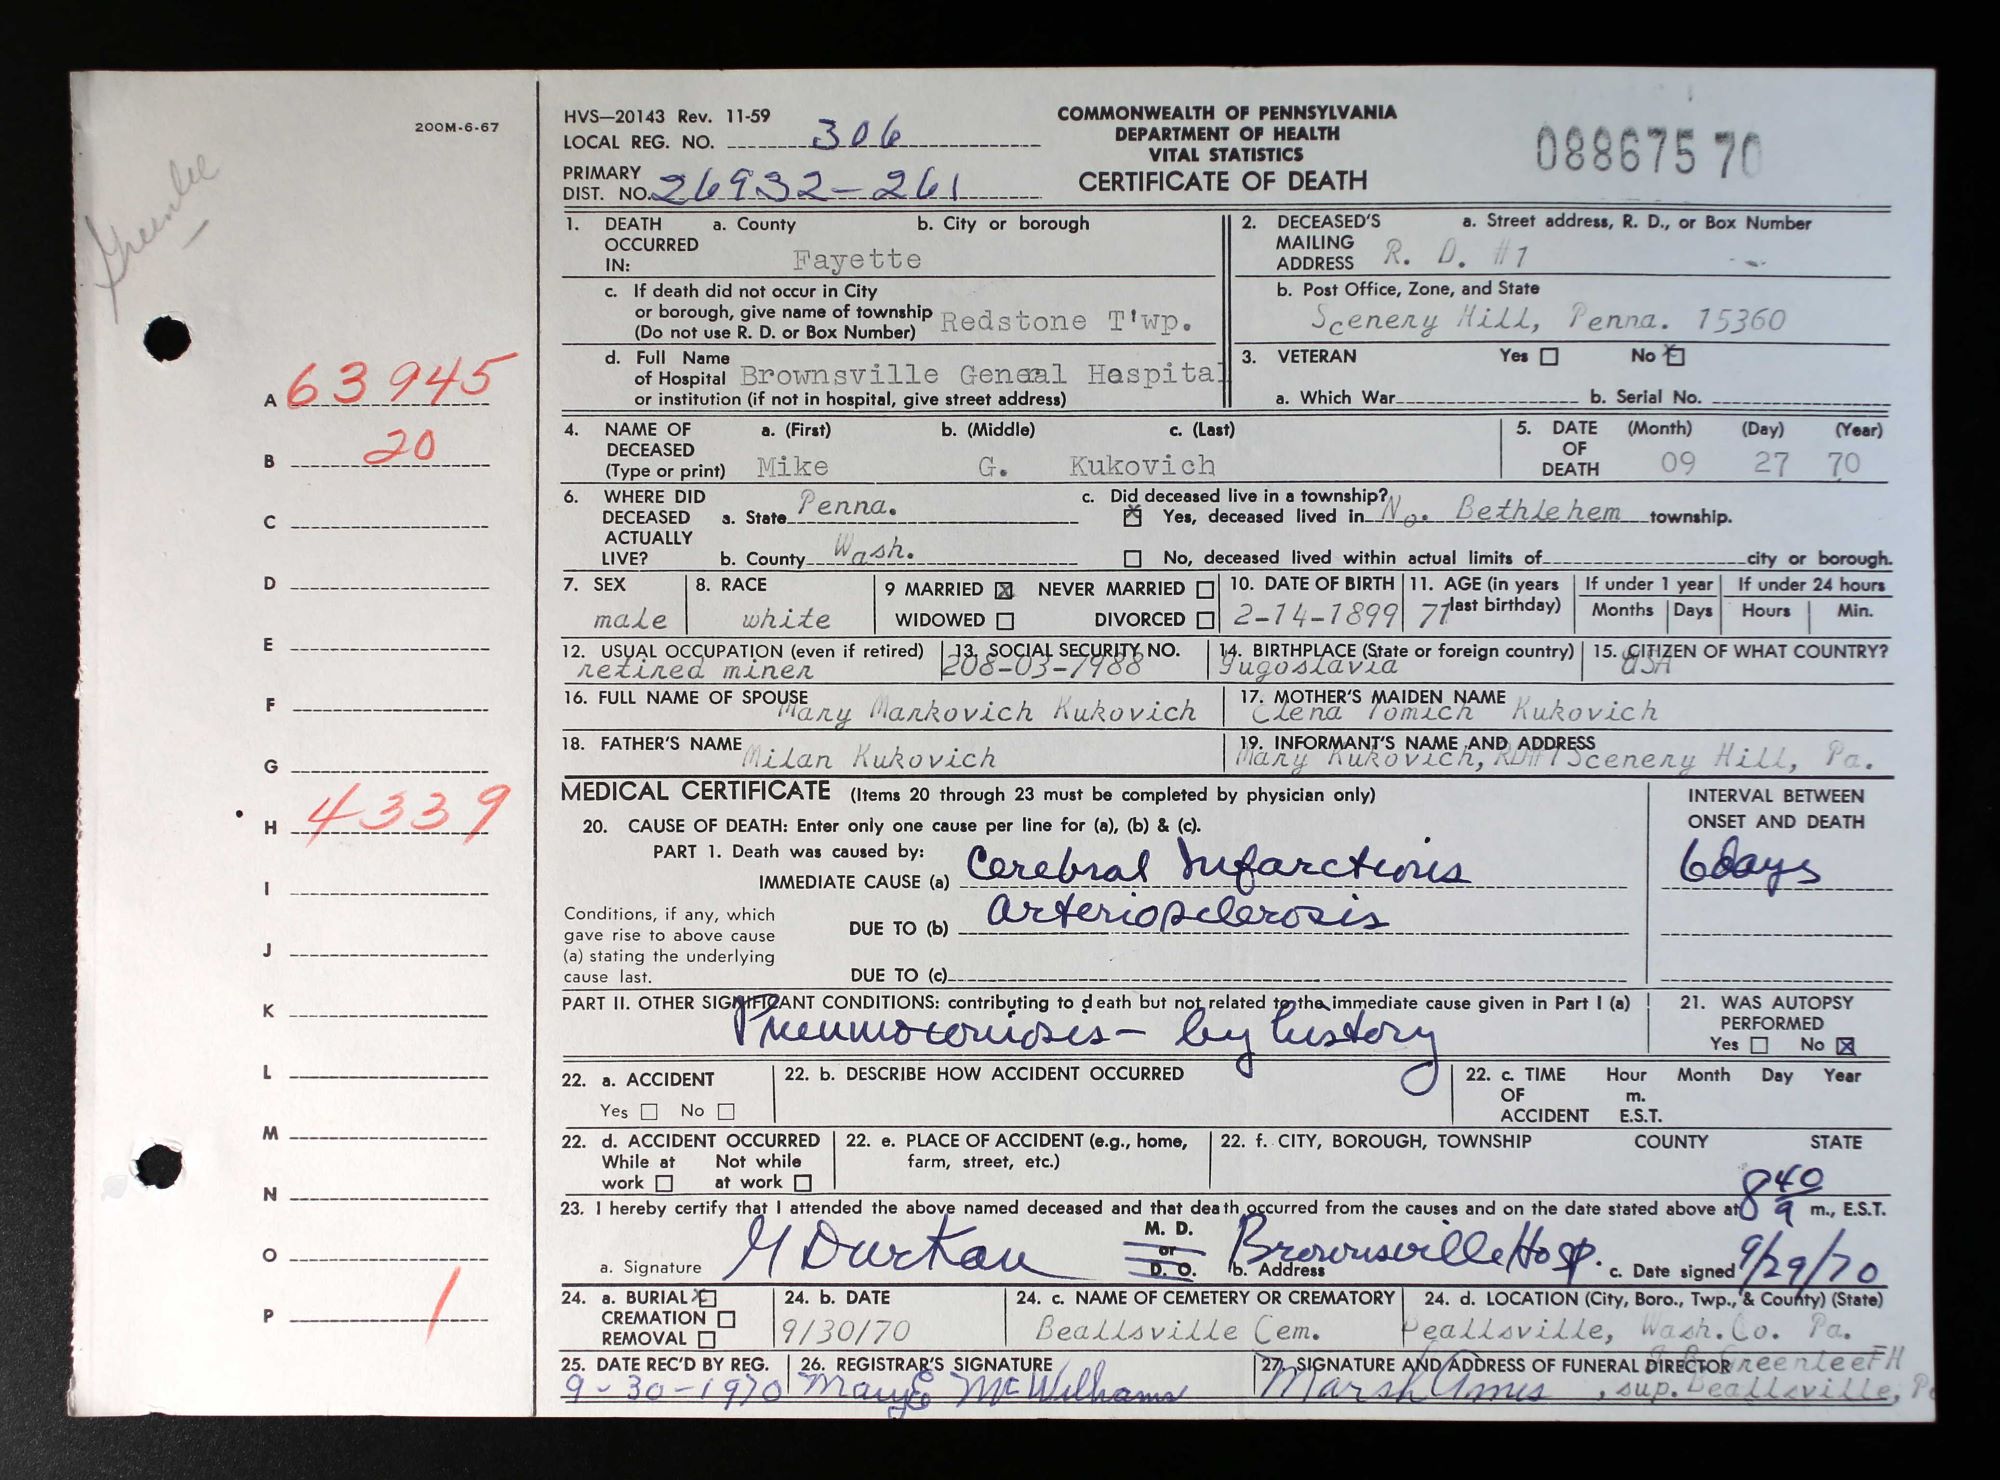 200M-6-67
Greenlee
A 63945
B 20
C
D
E
F
G
H 4339
I
J
K
L
M
N
O
P 1
HVS—20143 Rev. 11-59
LOCAL REG. NO. 306
PRIMARY
DIST. NO. 26932-261
COMMONWEALTH OF PENNSYLVANIA
DEPARTMENT OF HEALTH
VITAL STATISTICS
CERTIFICATE OF DEATH
088675 70
1. DEATH OCCURRED IN: a. County b. City or borough
Fayette
c. If death did not occur in City
or borough, give name of township
(Do not use R. D. or Box Number) Redstone T'wp.
d. Full Name
of Hospital Brownsville General Hospital
or institution (if not in hospital, give street address)
2. DECEASED'S MAILING ADDRESS a. Street address, R. D., or Box Number
R. D. #1
b. Post Office, Zone, and State
Scenery Hill, Penna. 15360
3. VETERAN Yes No
a. Which War b. Serial No.
4. NAME OF DECEASED (Type or print) a. (First) b. (Middle) c. (Last)
Mike G. Kukovich
5. DATE OF DEATH (Month) (Day) (Year)
09 27 70
6. WHERE DID DECEASED ACTUALLY LIVE? a. State Penna.
b. County Wash.
c. Did deceased live in a township?
Yes, deceased lived in No. Bethlehem township.
No, deceased lived within actual limits of city or borough.
7. SEX
male
8. RACE
white
9 MARRIED NEVER MARRIED
WIDOWED DIVORCED
10. DATE OF BIRTH
2-14-1899
11. AGE (in years last birthday)
71
If under 1 year
Months Days
If under 24 hours
Hours Min.
12. USUAL OCCUPATION (even if retired)
retired miner
13. SOCIAL SECURITY NO.
208-03-7988
14. BIRTHPLACE (State or foreign country)
Yugoslavia
15. CITIZEN OF WHAT COUNTRY?
USA
16. FULL NAME OF SPOUSE
Mary Markovich Kukovich
17. MOTHER'S MAIDEN NAME
Elena Tomich Kukovich
18. FATHER'S NAME
Milan Kukovich
19. INFORMANT'S NAME AND ADDRESS
Mary Kukovich, RD#1 Scenery Hill, Pa.
MEDICAL CERTIFICATE (Items 20 through 23 must be completed by physician only)
20. CAUSE OF DEATH: Enter only one cause per line for (a), (b) & (c).
PART 1. Death was caused by:
IMMEDIATE CAUSE (a) Cerebral Infarctions
Conditions, if any, which
gave rise to above cause
(a) stating the underlying
cause last.
DUE TO (b) arteriosclerosis
DUE TO (c)
INTERVAL BETWEEN
ONSET AND DEATH
6 days
PART II. OTHER SIGNIFICANT CONDITIONS: contributing to death but not related to the immediate cause given in Part I (a)
Pneumoconiosis - by history
21. WAS AUTOPSY
PERFORMED
Yes No
22. a. ACCIDENT
Yes No
22. b. DESCRIBE HOW ACCIDENT OCCURRED
22. c. TIME OF ACCIDENT Hour Month Day Year
m.
E.S.T.
22. d. ACCIDENT OCCURRED
While at work Not while at work
22. e. PLACE OF ACCIDENT (e.g., home,
farm, street, etc.)
22. f. CITY, BOROUGH, TOWNSHIP COUNTY STATE
23. I hereby certify that I attended the above named deceased and that death occurred from the causes and on the date stated above at 8 40 a m., E.S.T.
a. Signature M Durkan M. D. or D. O. b. Address Brownsville Hosp. c. Date signed 9/29/70
24. a. BURIAL
CREMATION
REMOVAL
24. b. DATE
9/30/70
24. c. NAME OF CEMETERY OR CREMATORY
Beallsville Cem.
24. d. LOCATION (City, Boro., Twp., & County) (State)
Beallsville, Wash. Co. Pa.
25. DATE REC'D BY REG.
9-30-1970
26. REGISTRAR'S SIGNATURE
Mary E McWilliams
27. SIGNATURE AND ADDRESS OF FUNERAL DIRECTOR Greenlee FH
Marsh Ames, sup. Beallsville, Pa